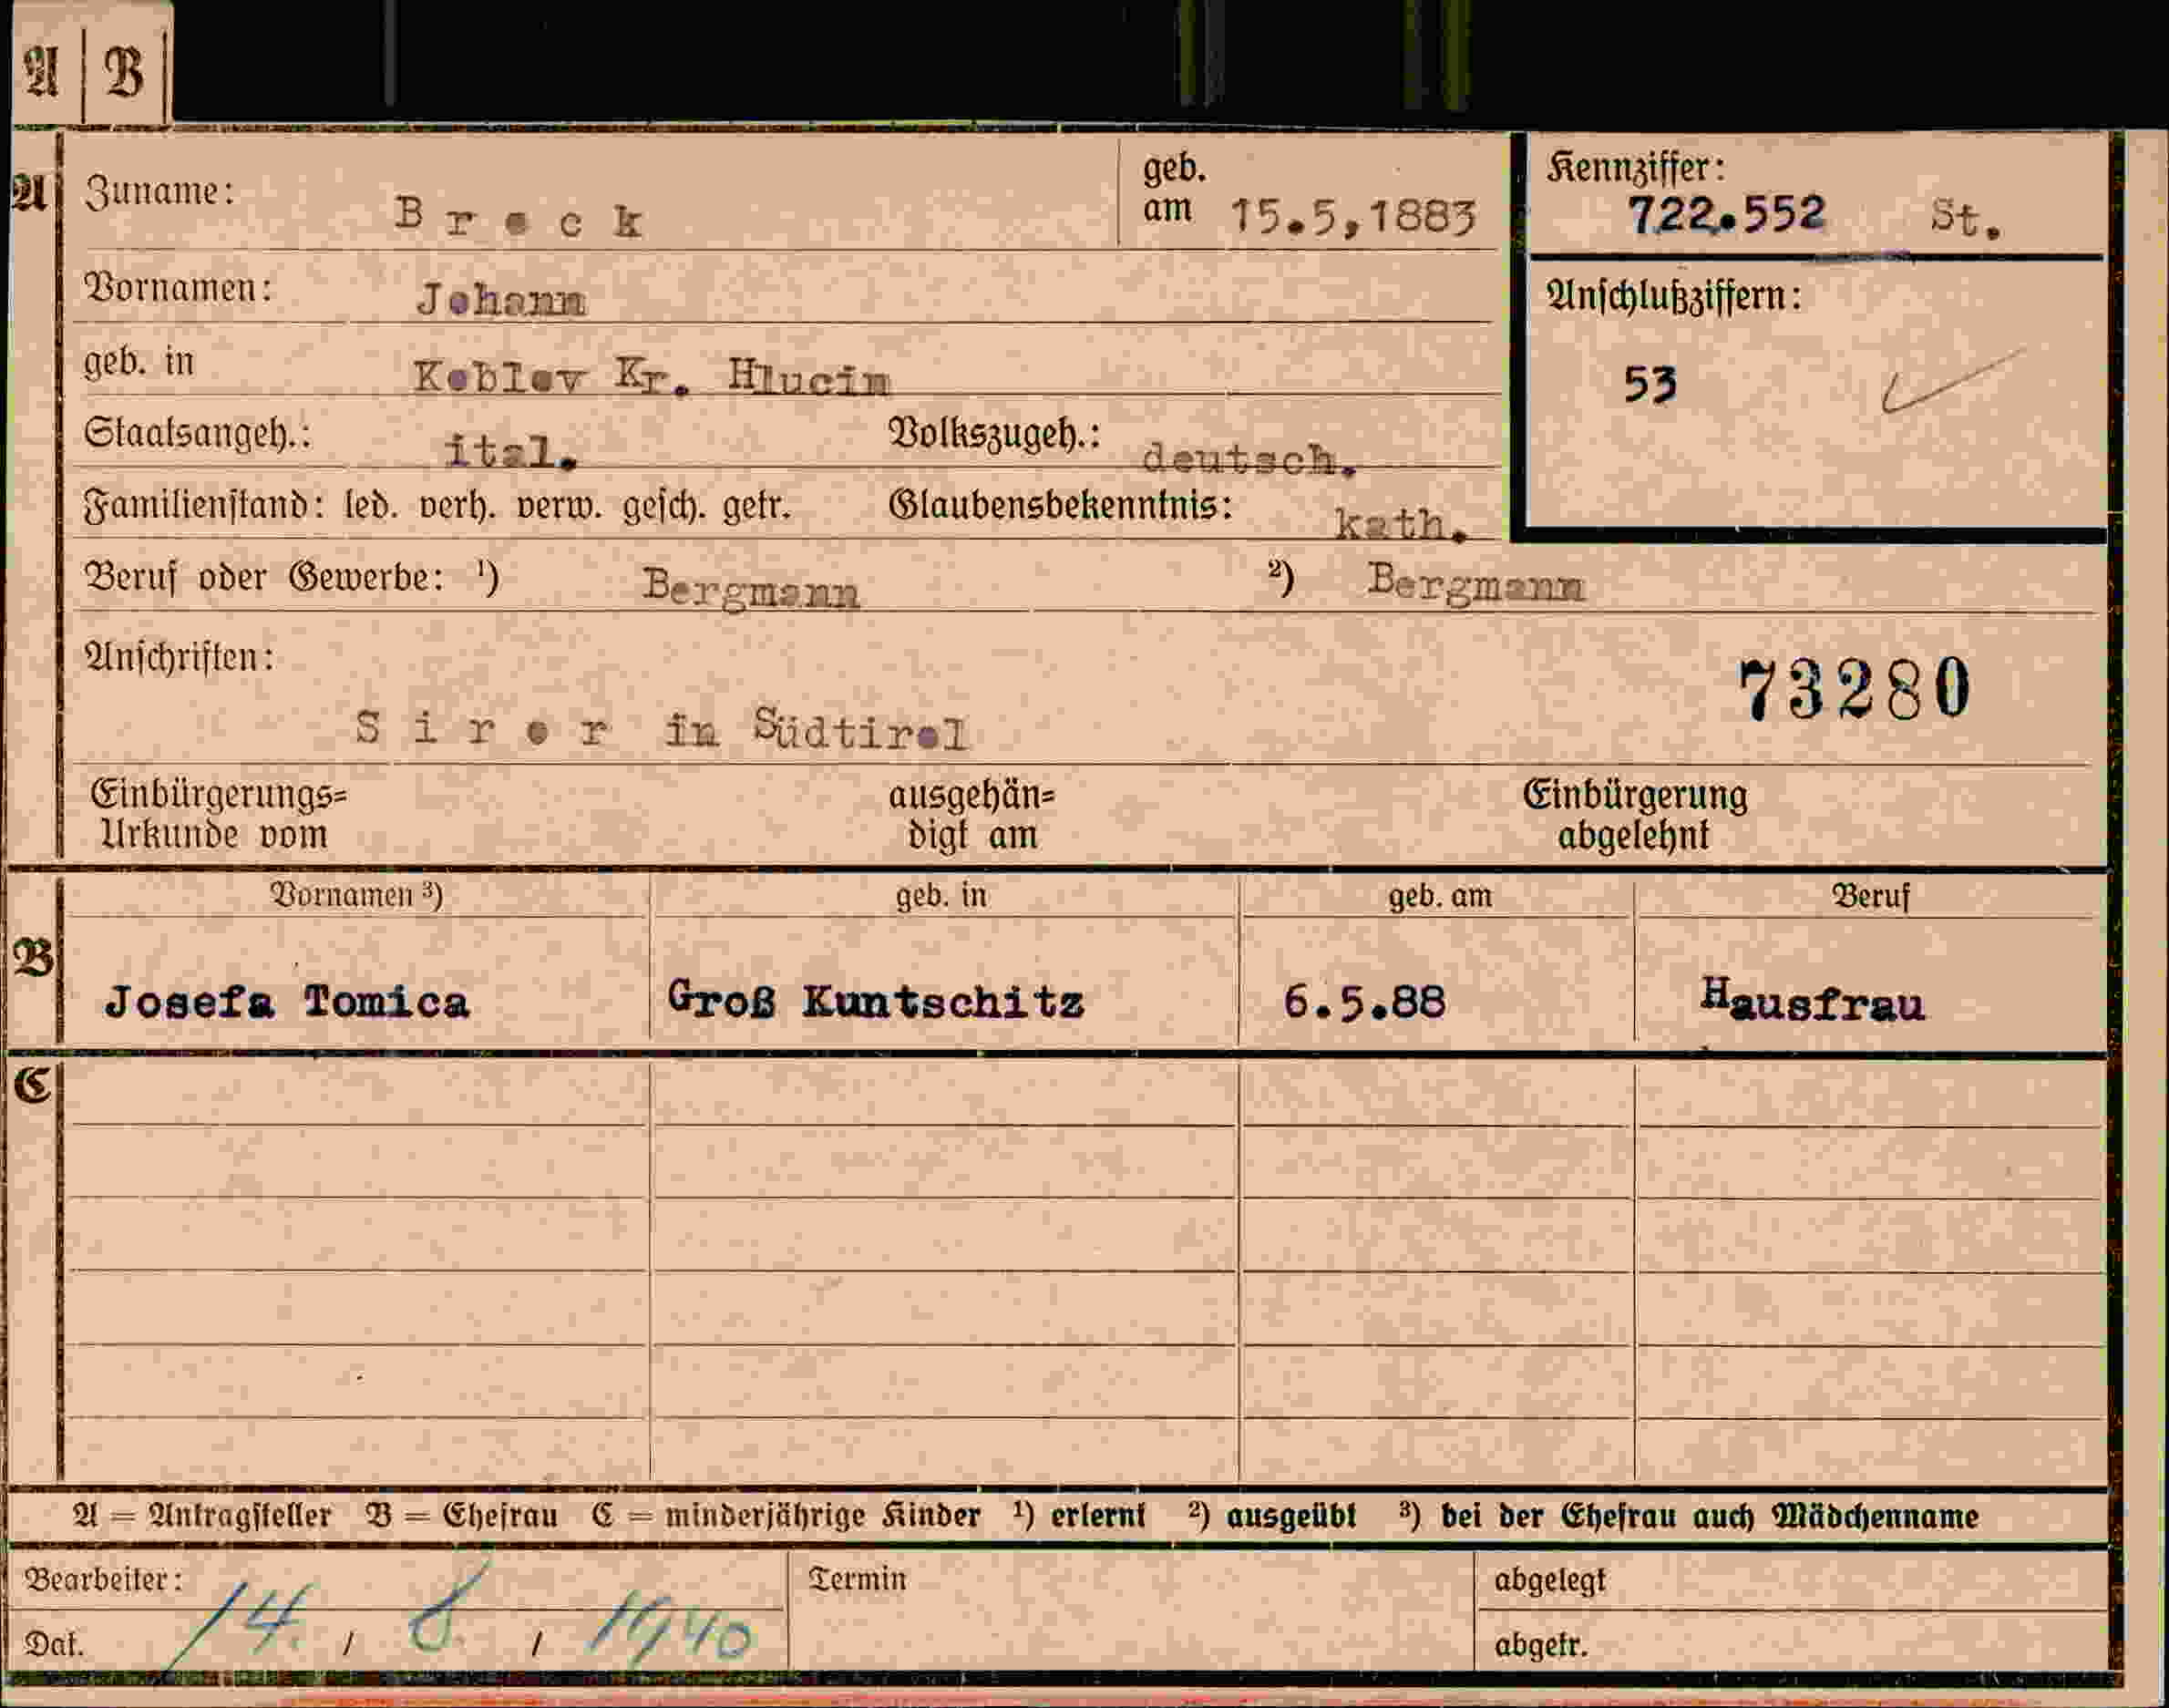 A | B
A Zuname: B r o c k geb. am 15.5,1883
Kennziffer: 722.552 St.
Vornamen: Johann
Anschlußziffern:
53
geb. in Koblov Kr. Hlucin
Staatsangeh.: ital. Volkszugeh.: deutsch.
Familienstand: led. verh. verw. gesch. getr. Glaubensbekenntnis: kath.
Beruf oder Gewerbe: ¹) Bergmann ²) Bergmann
Anschriften:
73280
S i r o r in Südtirol
Einbürgerungs= ausgehän= Einbürgerung
Urkunde vom digt am abgelehnt
Vornamen ³) geb. in geb. am Beruf
B Josefa Tomica Groß Kuntschitz 6.5.88 Hausfrau
C
A = Antragsteller B = Ehefrau C = minderjährige Kinder ¹) erlernt ²) ausgeübt ³) bei der Ehefrau auch Mädchenname
Bearbeiter: Termin abgelegt
Dat. 14. / 8. / 1940 abgetr.